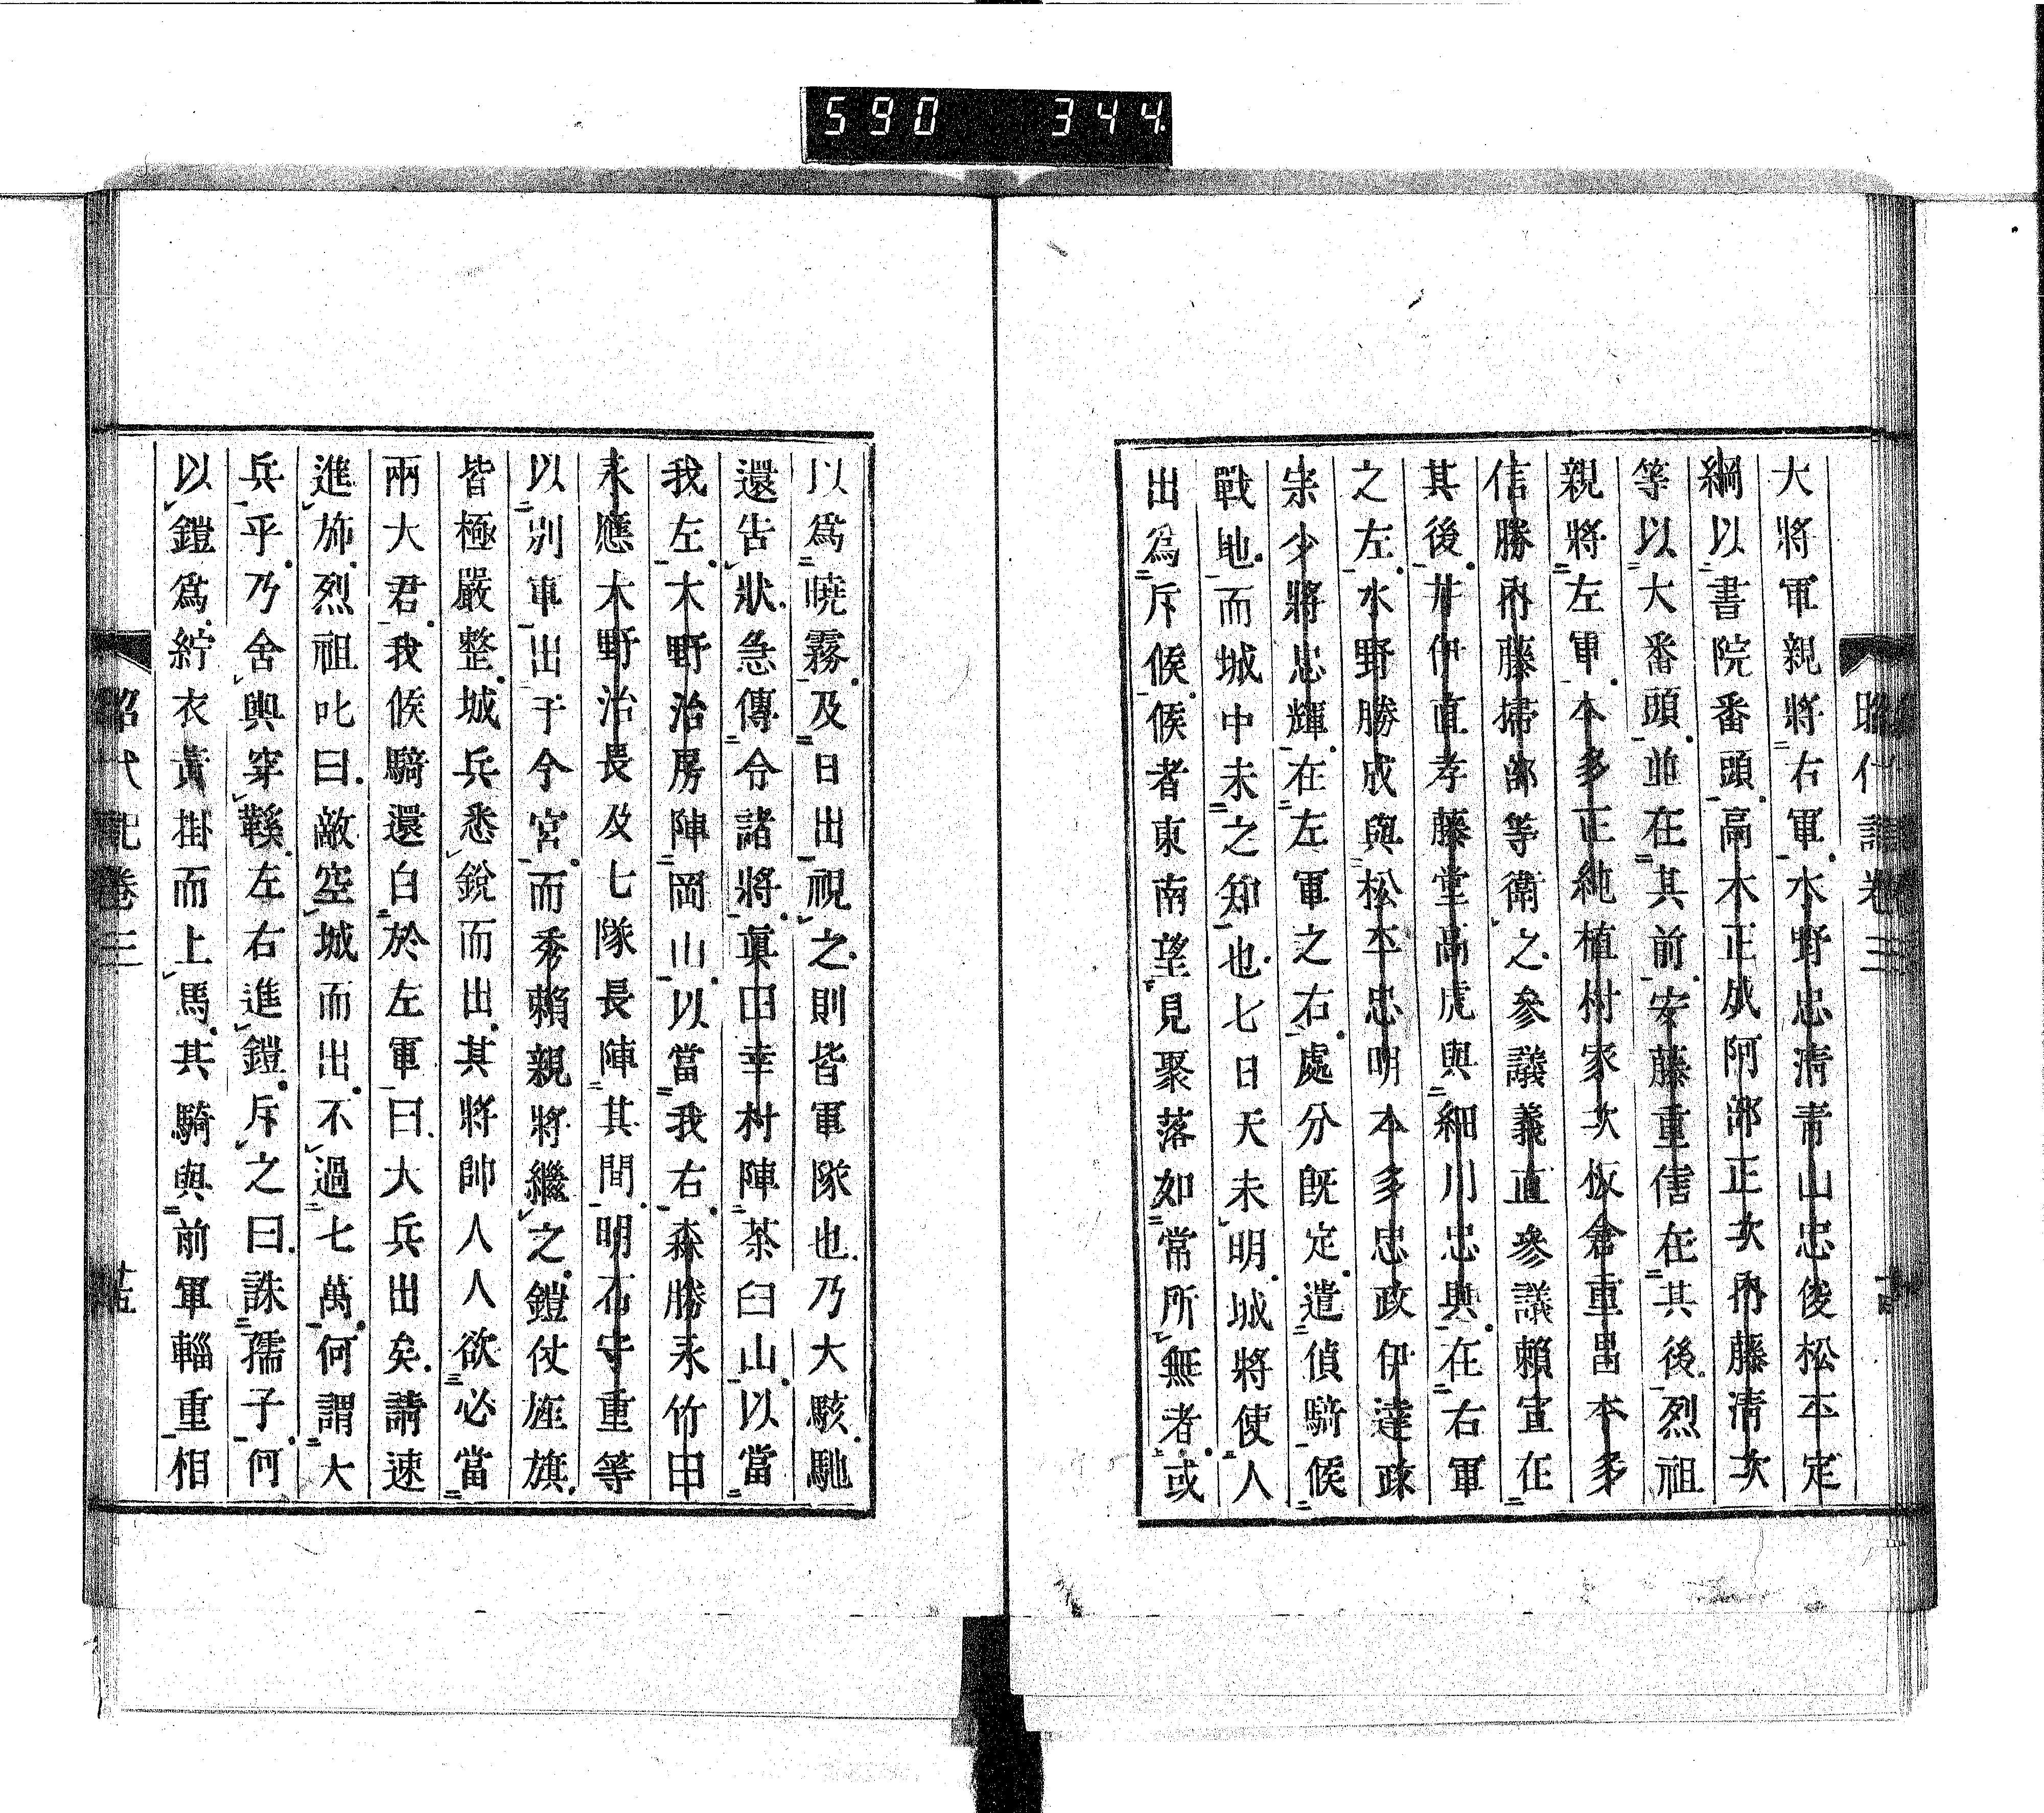 590 344
昭代記卷三
大將軍親將右軍水野忠清青山忠俊松平定
綱以書院番頭高木正成阿部正次內藤清次
等以大番頭並在其前安藤重信在其後烈祖
親將左軍本多正純植村家次板倉重昌本多
信勝內藤掃部等衛之參議義直參議賴宣在
其後井伊直孝藤堂高虎與細川忠興在右軍
之左水野勝成與松平忠明本多忠政伊達政
宗少將忠輝在左軍之右處分既定遣偵騎候
戰地而城中未之知也七日天未明城將使人
出爲斥候候者東南望見聚落如常所無者或
以爲曉霧及日出視之則皆軍隊也乃大駭馳
還告狀急傳令諸將眞田幸村陣茶臼山以當
我左大野治房陣岡山以當我右森勝永竹田
永應大野治長及七隊長陣其間明石守重等
以別軍出于今宮而秀賴親將繼之鎧仗旌旗
皆極嚴整城兵悉銳而出其將帥人人欲必當
兩大君我候騎還白於左軍曰大兵出矣請速
進旆烈祖叱曰敵空城而出不過七萬何謂大
兵乎乃舍輿穿鞵左右進鎧斥之曰誅孺子何
以鎧爲紵衣黃掛而上馬其騎與前軍輜重相
昭代記卷三